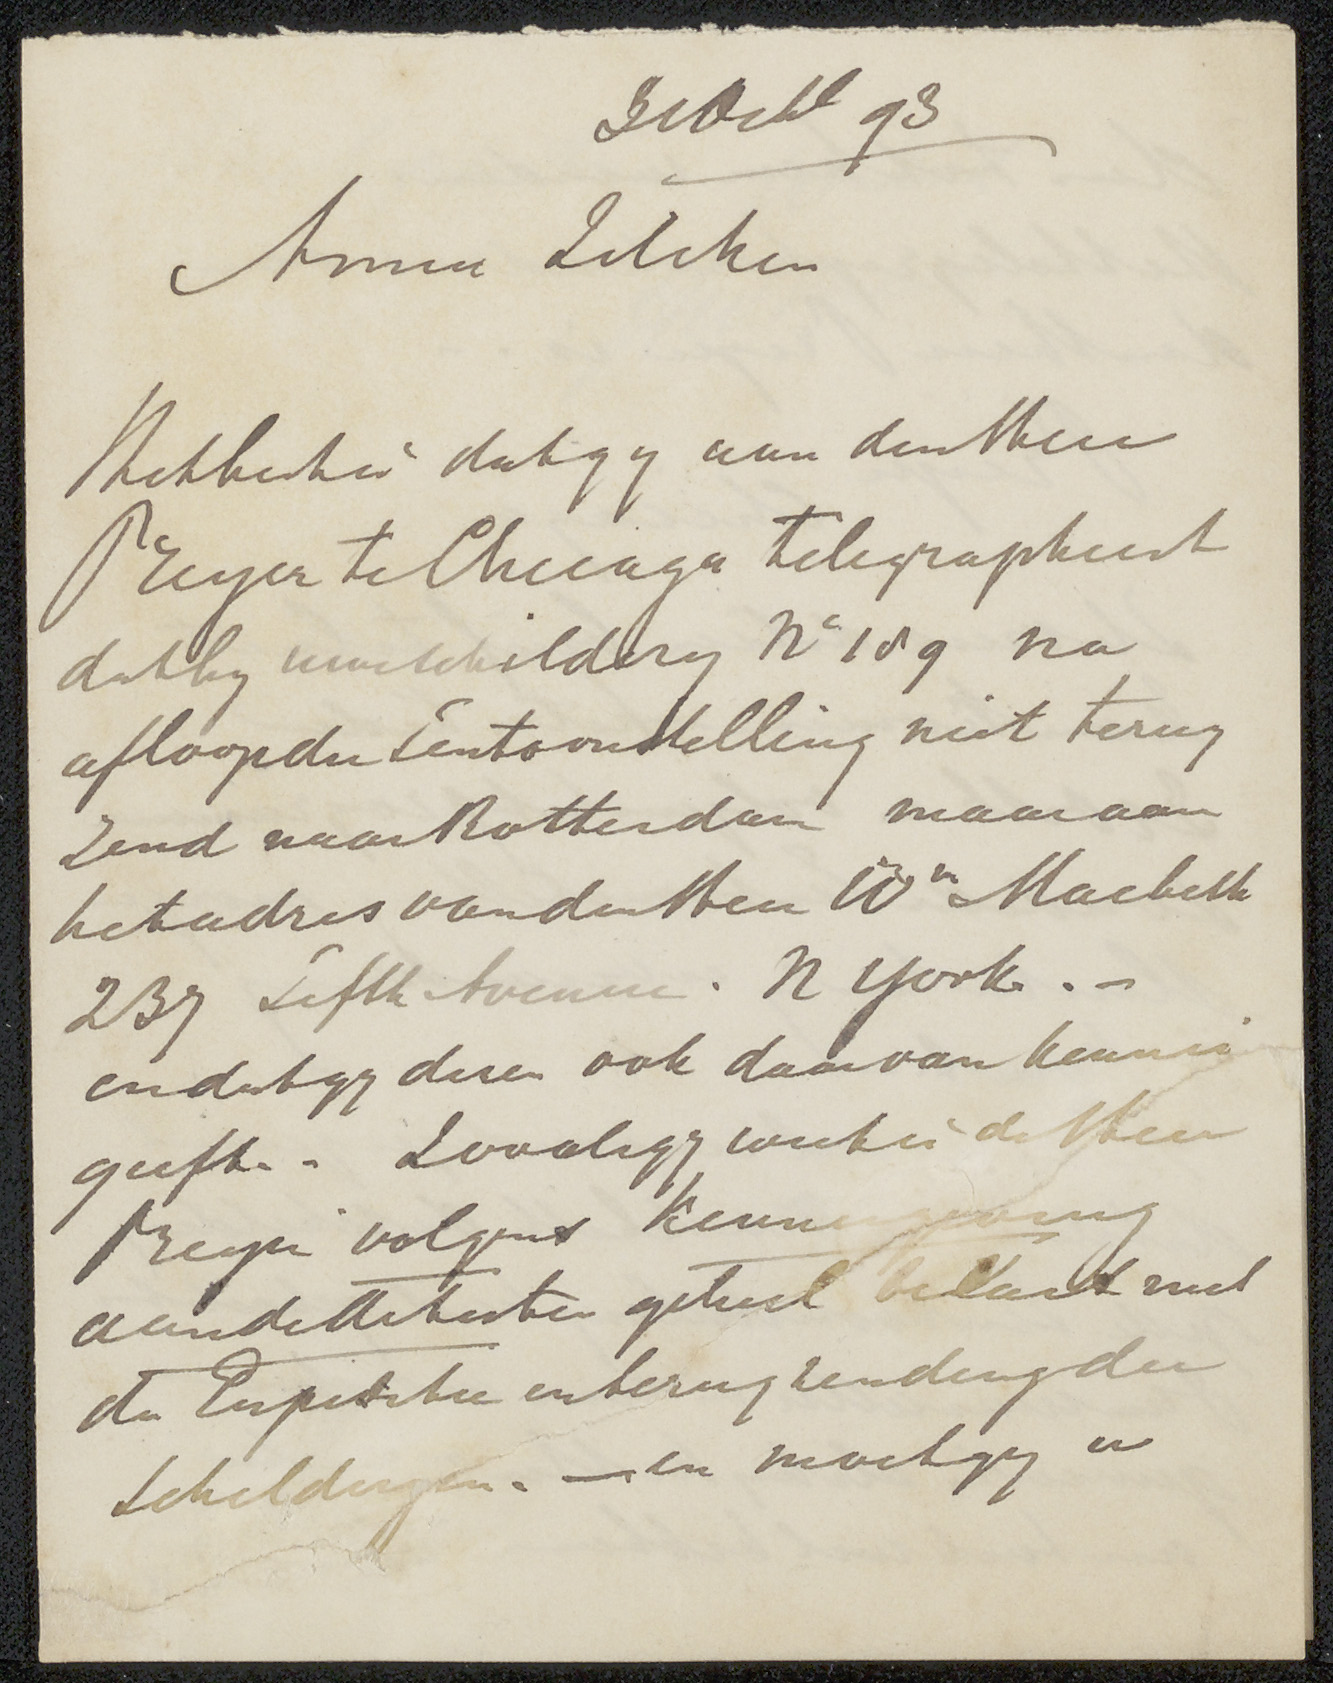 31 Oct 93
Amice Zilcken
Het beste is dat gy aan den Heer
Preyer te Chicago telegrapheert
dat hy uwe schildery N° 189 na
afloop der Tentoonstelling niet terug
zend naar Rotterdam maar aan
het adres van den Heer Wm Macbeth
237 Fifth Avenue. N York. –
en dat gy dezen ook daarvan kennis
geeft. – Zooals gy weet is de Heer
Preyer volgens kennisgeving
aan de Artisten geheel belast met
de Expeditie en terugzending der
schilderyen. — en moet gy u